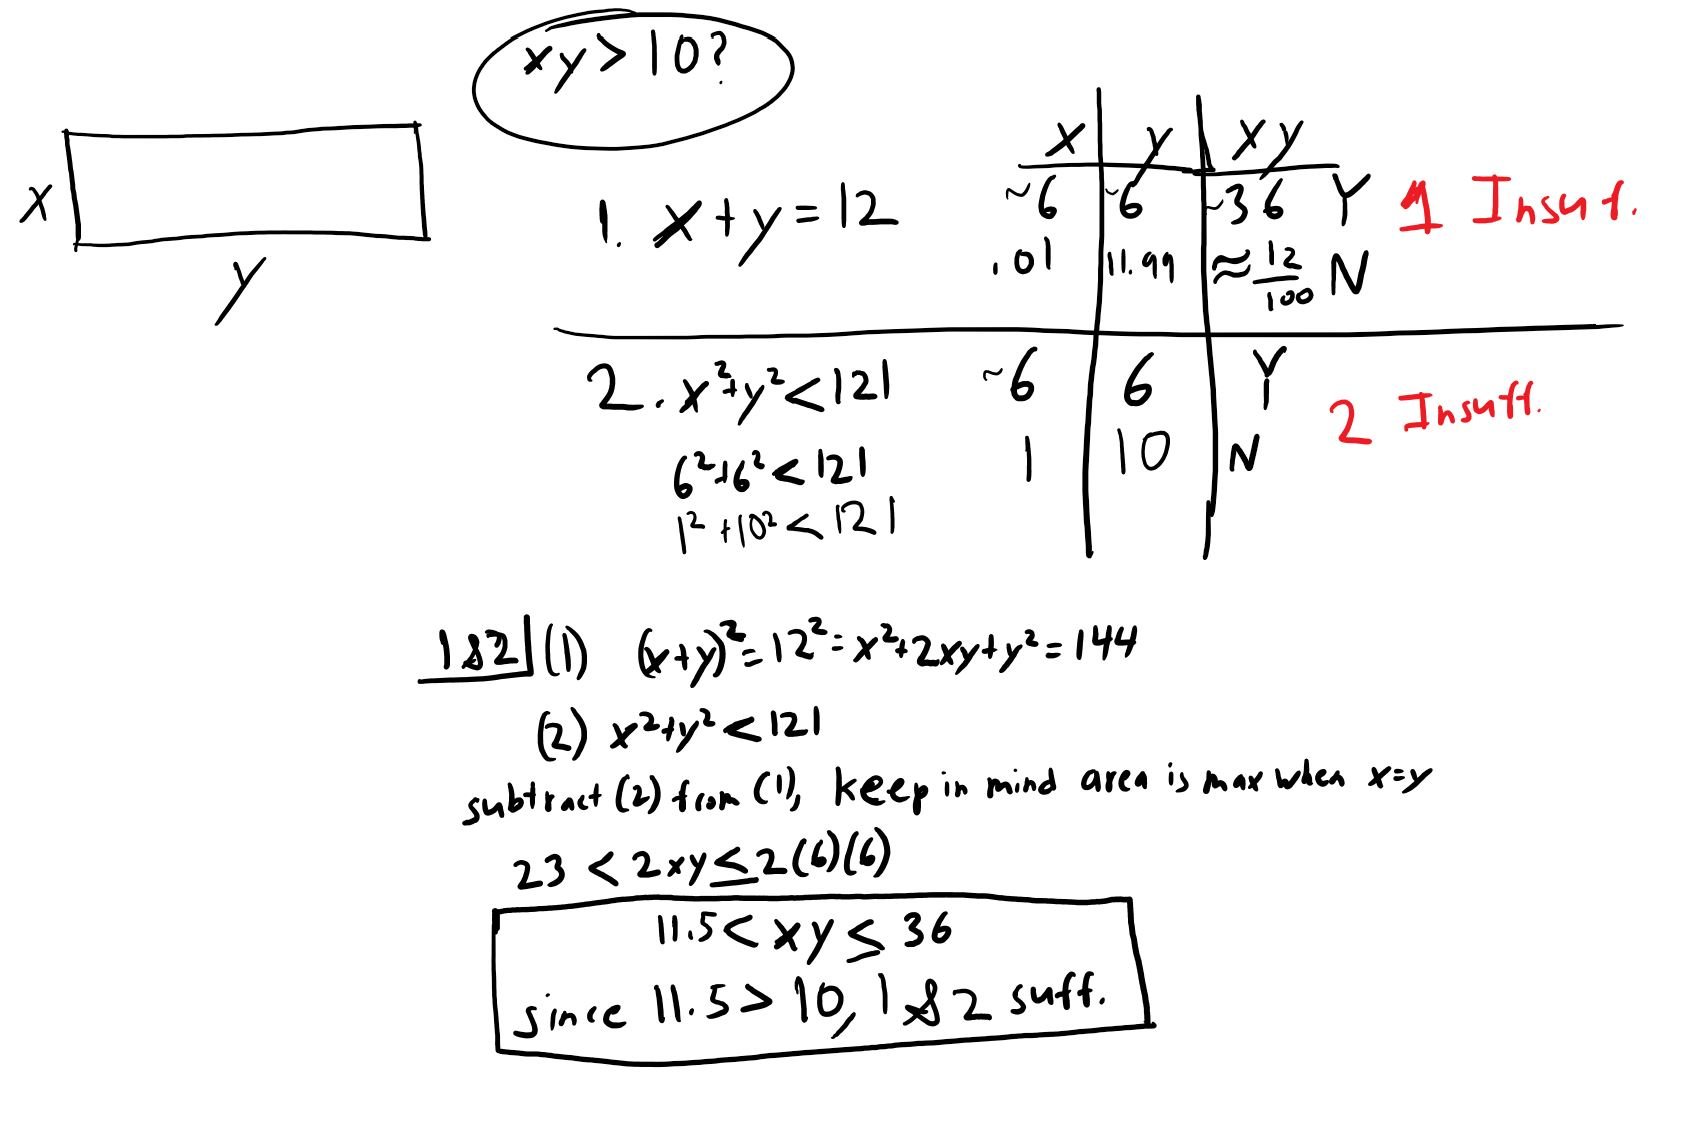 xy > 10?
x
y
1. x + y = 12
x y xy
~6 ~6 ~36 Y
.01 11.99 ≈ 12/100 N
1 Insuf.
2. x² + y² < 121
6² + 6² < 121
1² + 10² < 121
~6 6 Y
1 10 N
2 Insuff.
1&2 (1) (x+y)² = 12² = x² + 2xy + y² = 144
(2) x² + y² < 121
subtract (2) from (1), keep in mind area is max when x=y
23 < 2xy ≤ 2(6)(6)
11.5 < xy ≤ 36
since 11.5 > 10, 1&2 suff.